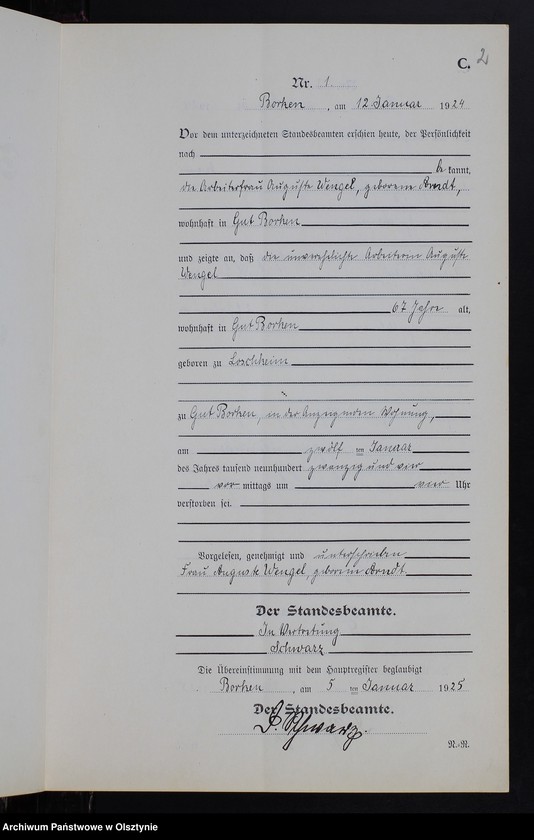 C. 2
Nr. 1.
Borken, am 12 Januar 1924
Vor dem unterzeichneten Standesbeamten erschien heute, der Persönlichkeit
nach
be kannt,
die Arbeiterfrau Auguste Wengel, geborene Arndt,
wohnhaft in Gut Borken
und zeigte an, daß die unverehelichte Arbeiterin Auguste
Wengel
67 Jahre alt,
wohnhaft in Gut Borken
geboren zu Loschheim
zu Gut Borken, in der Anzeigenden Wohnung,
am zwölf ten Januar
des Jahres tausend neunhundert zwanzig und vier
vor mittags um vier Uhr
verstorben sei.
Vorgelesen, genehmigt und unterschrieben
Frau Auguste Wengel, geborene Arndt
Der Standesbeamte.
In Vertretung
Schwarz
Die Übereinstimmung mit dem Hauptregister beglaubigt
Borken, am 5 ten Januar 1925
Der Standesbeamte.
Schwarz.
N.-R.
Archiwum Państwowe w Olsztynie